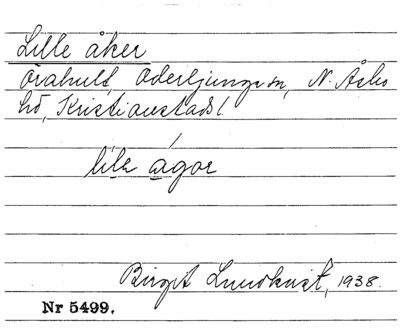 Lille åker
Örahult, Oderljunga sn, N. Åsbo
hd, Kristianstads l
lilə ágor
Birgit Lundkvist, 1938.
Nr 5499.